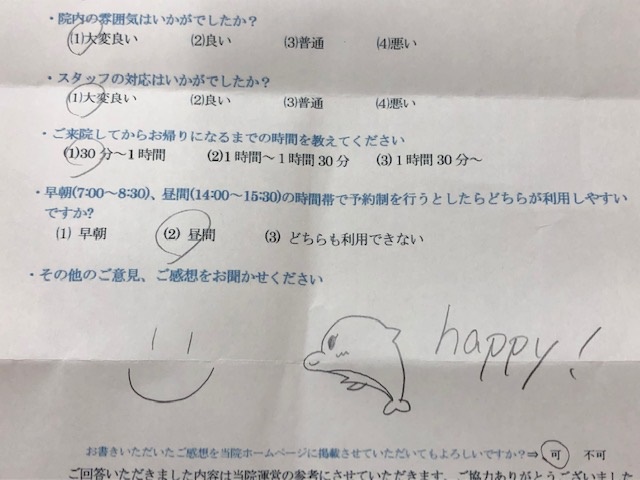 ・院内の雰囲気はいかがでしたか？
(1)大変良い (2)良い (3)普通 (4)悪い
・スタッフの対応はいかがでしたか？
(1)大変良い (2)良い (3)普通 (4)悪い
・ご来院してからお帰りになるまでの時間を教えてください
(1)30分～1時間 (2)1時間～1時間30分 (3)1時間30分～
・早朝(7:00～8:30)、昼間(14:00～15:30)の時間帯で予約制を行うとしたらどちらが利用しやすい
ですか?
(1) 早朝 (2) 昼間 (3) どちらも利用できない
・その他のご意見、ご感想をお聞かせください
happy!
お書きいただいたご感想を当院ホームページに掲載させていただいてもよろしいですか？⇒ 可 不可
ご回答いただきました内容は当院運営の参考にさせていただきます。ご協力ありがとうございました